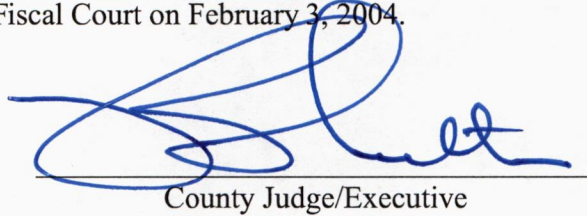 Fiscal Court on February 3, 2004.
County Judge/Executive